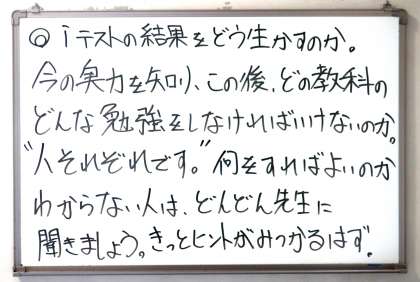 ◎ iテストの結果をどう生かすのか。
今の実力を知り、この後、どの教科の
どんな勉強をしなければいけないのか。
"人それぞれです。"何をすればよいのか
わからない人は、どんどん先生に
聞きましょう。きっとヒントがみつかるはず.